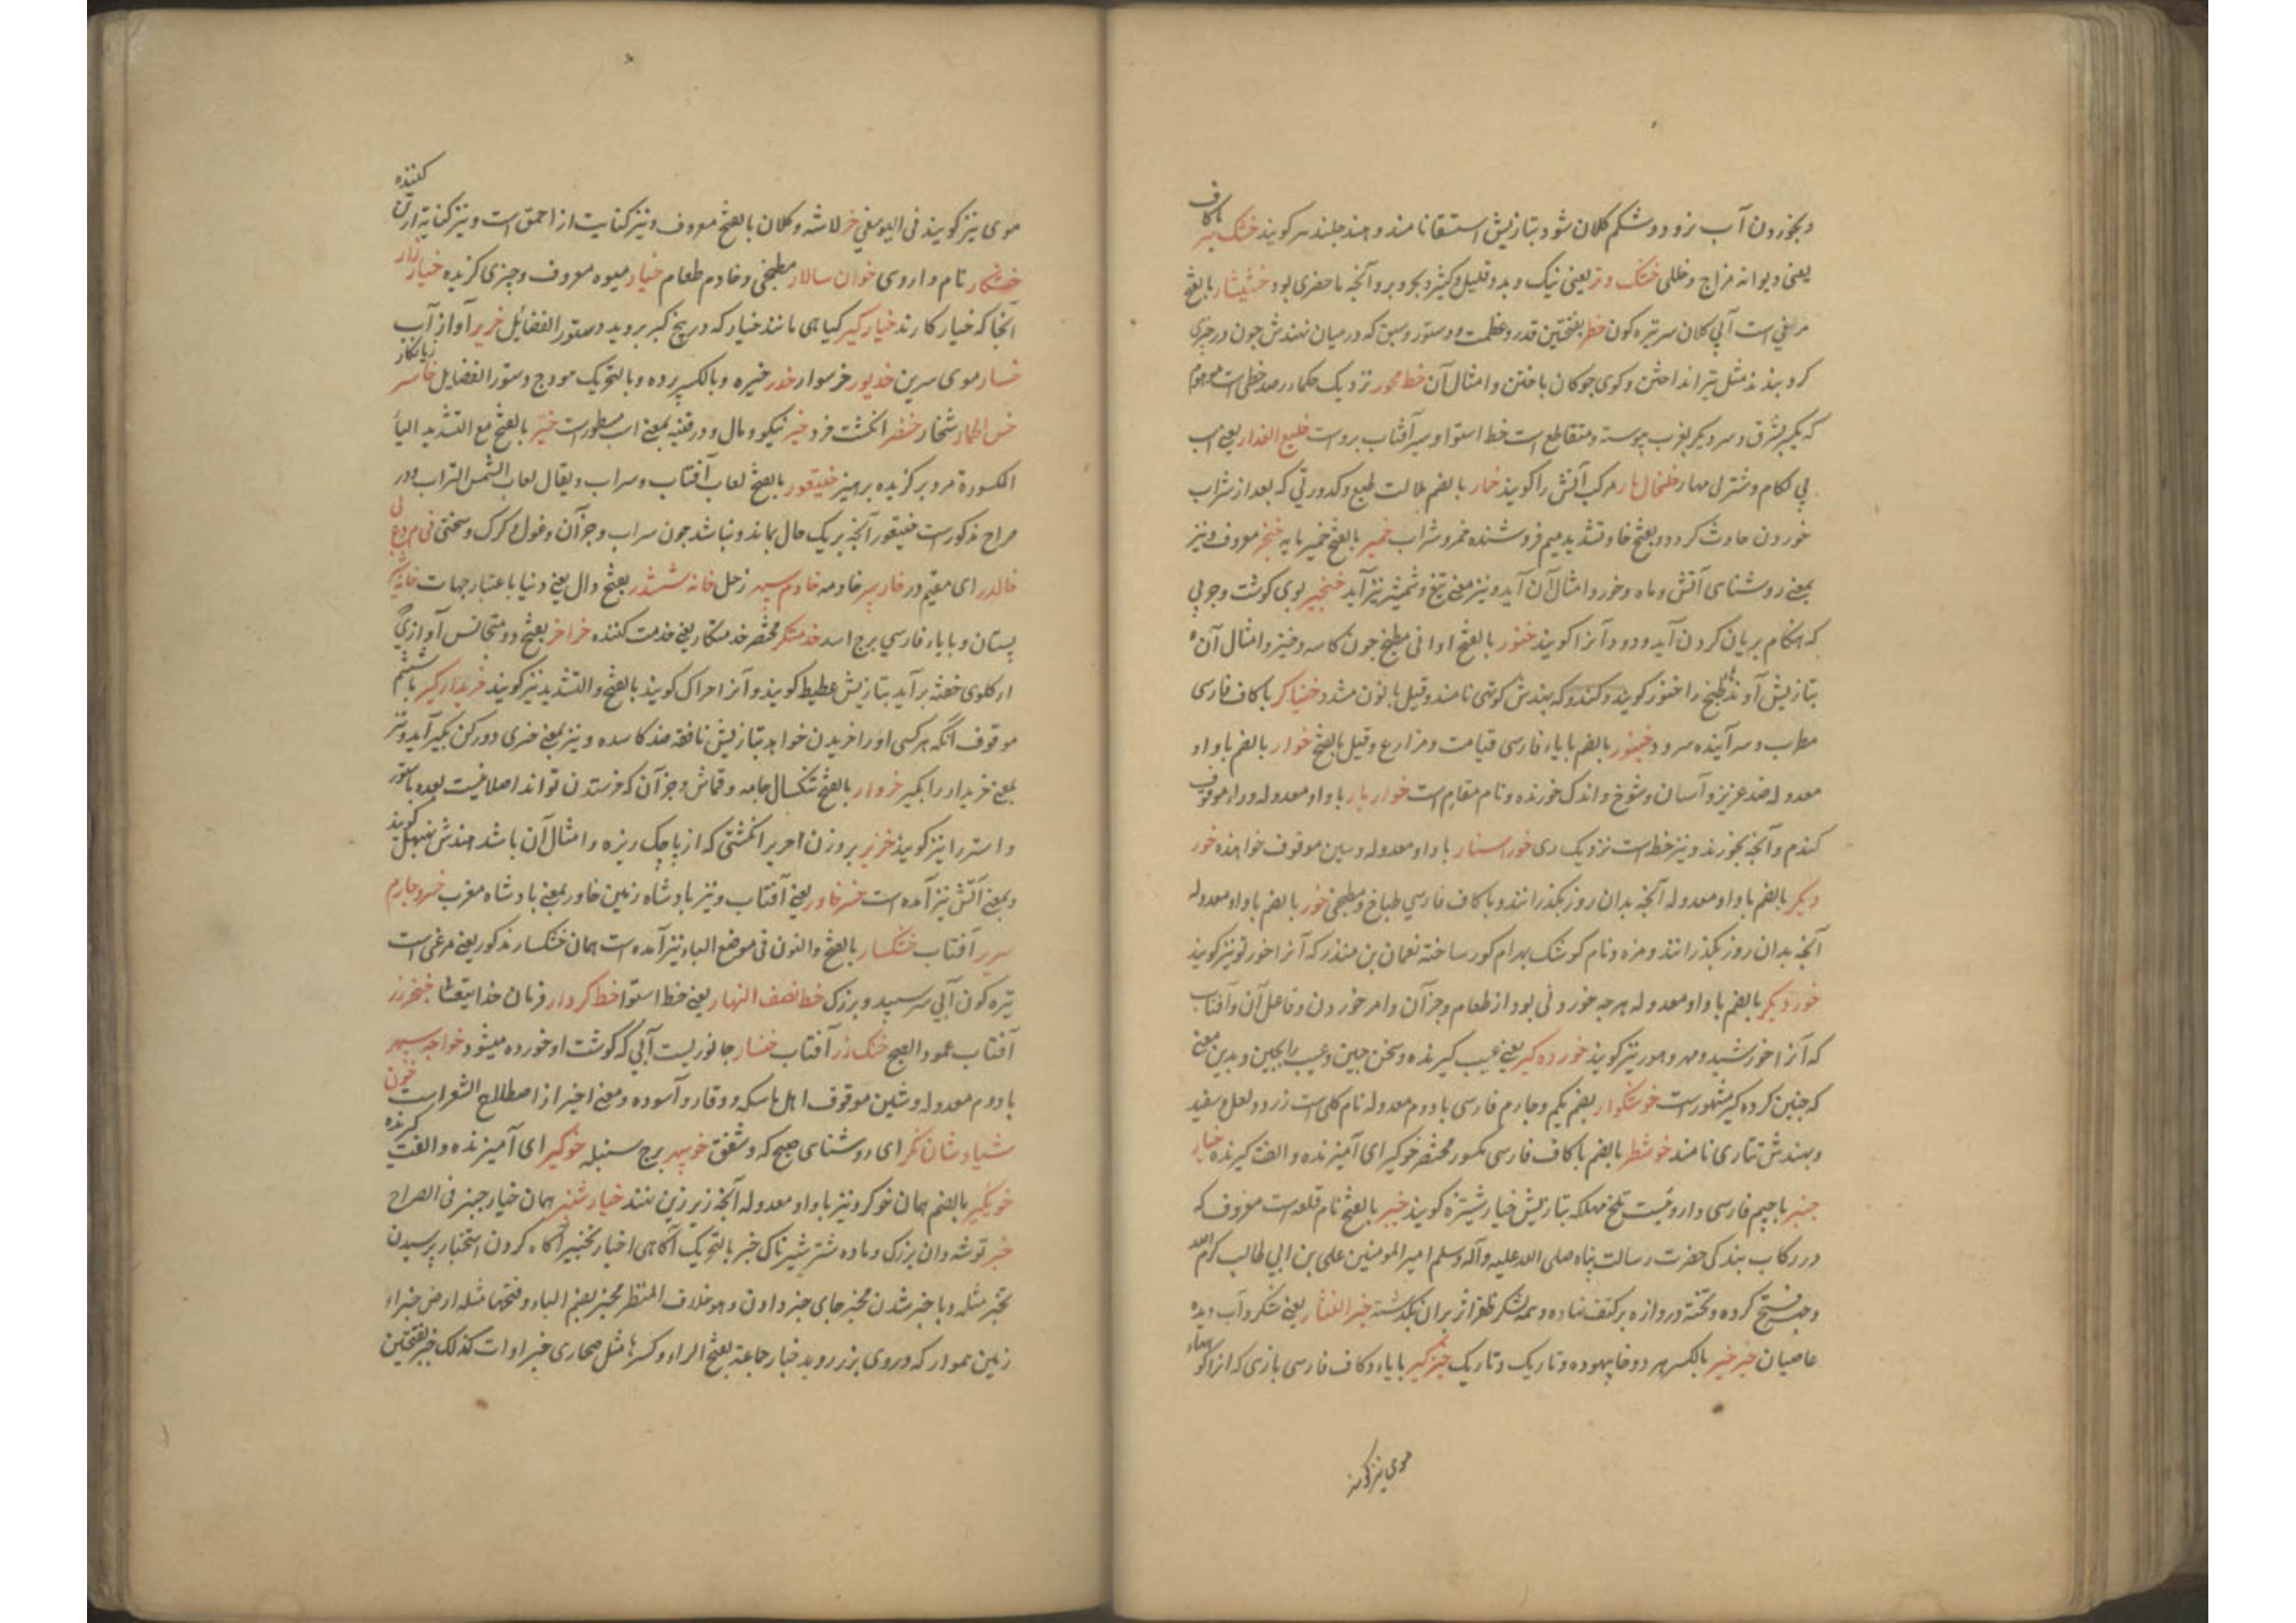 و بخوردن آب نرود و شکم کلان شود بتازیش استسقا نامند و هند جلندهر کویند خشک سر باکاف
یعنی دیوانه مزاج و خللی خشک و تر یعنی نیک و بد و قلیل و کثیر و بحر و بر و آنچه ماحضری بود خشیشار بالفتح
مرغی است آبی کلان سر تیره کون خطر بفتحتین قدر و عظمت و دستور و سبق که در میان نهندش چون در چیزی
کرو بندند مثل تیر انداختن و کوی چوکان باختن و امثال آن خط محور نزدیک حکما در رصد خطی است موهوم
که یکسر بشرق و سر دیکر بغرب پیوسته و متقاطع است خط استوا و سیر آفتاب بروست خلیع العذار یعنی اسب
بی لکام و شتر بی مهار خلخال دار مرکب آتش را کویند خمار بالضم ملالت طبع و کدورتی که بعد از شراب
خوردن حادث کردد و بفتح خا و تشدید میم فروشنده خمر و شراب خمیر بالفتح خمیر مایه خنجر معروف و نیز
بمعنی روشنای آتش و ماه و خور و امثال آن آید و نیز معنی تیغ و شمشیر نیز آید خنجیر بوی کوشت و چربی
که هنکام بریان کردن آید و دود آنرا کویند خنور بالفتح اوانی مطبخ چون کاسه و خنیر و امثال آن
بتازیش آوند مطبخ را خنور کویند و کندو که بهندش کوتهی نامند و قیل بانون مشدد خنیاکر باکاف فارسی
مطرب و سراینده سرود خنبور بالضم بایاء فارسی قیامت و مزارع و قیل بالفتح خوار بالضم با واو
معدوله ضد عزیز و آسان و شوخ و اندک خورنده و نام مقام است خوار بار با واو معدوله و راء موقوف
کندم و آنچه بخورند و نیز خطه است نزدیک ری خوراسنار با واو معدوله و سین موقوف خواهنده خور
دیکر بالضم با واو معدوله آنچه بدان روز بکذرانند و باکاف فارسی طباخ و مطبخی خور بالضم با واو معدوله
آنچه بدان روز بکذرانند و مزه و نام کوشک بهرام کور ساخته نعمان بن منذر که آنرا خورنق نیز کویند
خور دیکر بالضم با واو معدوله هر چه خوردنی بود از طعام و جز آن و امر خوردن و فاعل آن و آفتاب
که آنرا خورشید و مهر و هور نیز کویند خورده کیر یعنی عیب کیرنده و سخن چین و عیب را بچین و بدین معنی
که چنین کرده کیر مشهور است خوشکوار بضم یکم و چارم فارسی با دوم معدوله نام کلی است زرد و لعل و سفید
و بهندش تتاری نامند خوشطر بالضم باکاف فارسی مکسور مختصر خوکیر ای آمیزنده و الفت کیرنده خیار
چنبر باجیم فارسی داروئیست تلخ مهلکه بتازیش خیار شنبر کویند خیبر بالفتح نام قلعه است معروف که
در رکاب بندکی حضرت رسالت پناه صلی الله علیه وآله وسلم امیر المومنین علی بن ابی طالب کرم الله
وجهه فتح کرده و تخته دروازه بر کتف نهاده و همه لشکر ظفر اثر بران بکذشته خیر الغفار یعنی شکر و آب دیده
عاصیان خیر خیر بالکسر هر دو خا بیهوده و تاریک و تاریک خیز کیر بایاء و کاف فارسی بازی که آنرا کو
موی نیز کویند
موی نیز کویند فی الیوسفی خر لاشه و کلان بالفتح معروف و نیز کنایت از احمق است و نیز کنایه از رق کننده
نام داروی خوان سالار مطبخی و خادم طعام خیار میوه معروف و چیزی کزیده خیار زار
آنجا که خیار کارند خیار کیر کیاهی مانند خیار که در بیخ کبر بروید دستور الفضائل خریر آواز آب
خسار موی سرین خدیور خر سوار خدر خیره و بالکسر پرده و بالتحریک مودج دستور الفضایل خاسر زیانکار
خس الحمار شنجار خنصر انکشت خرد خیر نیکو و مال و در قنیه بمعنی اسب مسطور است خیر بالفتح مع التشدید الیاء
المکسورة مرد برکزیده پرهیز خیتعور بالفتح لعاب آفتاب و سراب و یقال لعاب الشمس السراب و در
صراح مذکور است خیتعور آنچه بر یک حال نماند و نباشد چون سراب و جز آن و غول و کرک و سختی
خالدر ای مقیم در خار سر خادمه خادم سپهر زحل خانه ششدر بفتح دال یعنی دنیا باعتبار جهات خانه
بستان و بایاء فارسی برج اسد خدمتکر مختصر خدمتکار یعنی خدمت کننده خراخر بفتح دو متجانس آوازی
از کلوی خفته برآید بتازیش غطیط کویند و آنرا خراک کویند بالفتح و التشدید نیز کویند خریدار کیر باشتم
موقوف آنکه هرکسی او را خریدن خواهد بتازیش نافقه ضد کاسده و نیز بمعنی خری دور کن بکیر آید و نیز
بمعنی خریدار را بکیر خروار بالفتح تنکسال جامه و قماش و جز آن که خر ستدن تواند اصلا غیست بعده بستور
و استر را نیز کویند خریر بر وزن احریر انکشتی که از پاچک ریزه و امثال آن باشد هندش کویند
و بمعنی آتش نیز آمده است خسرو خاور یعنی آفتاب و نیز پادشاه زمین خاور بمعنی پادشاه مغرب خسرو چارم
سریر آفتاب خنکسار بالفتح و النون فی موضع الباء نیز آمده است همان خشکسار مذکور یعنی مرغی است
تیره کون آبی سر سپید و بزرک خط نصف النهار یعنی خط استوا خط کردار فرمان خدایتعالی خنجر زر
آفتاب عمود الصبح خنک زر آفتاب خنسار جانوریست آبی که کوشت او خورده میشود خواجه سپهر
با دوم معدوله و شین موقوف اهل باسکه و وقار و آسوده و معنی اخیر از اصطلاح الشعراست خون
شیاوشان نکر ای روشنای صبح که و شفق خوسپهر برج سنبله خوکیر ای آمیزنده و الفت کیرنده
خویکیر بالضم همان خوکر و نیز با واو معدوله آنچه زیر زین نهند خیار شنبر همان خیار چنبر فی الصراح
خبر توشه دان بزرک و ماده شتر شیرناک خبر بالتحریک آکاهی اخبار تخبیر آکاه کردن استخبار پرسیدن
تخبر مثله و باخبر شدن مخبر جای خبر دادن و هو خلاف المنظر مخبر بضم الباء و فتحها مثله ارض خبراء
زمین هموار که در وی بزر روید خبار جماعة بفتح الراء و کسرها مثل صحاری خبراوات کذلک خبر بفتحتین